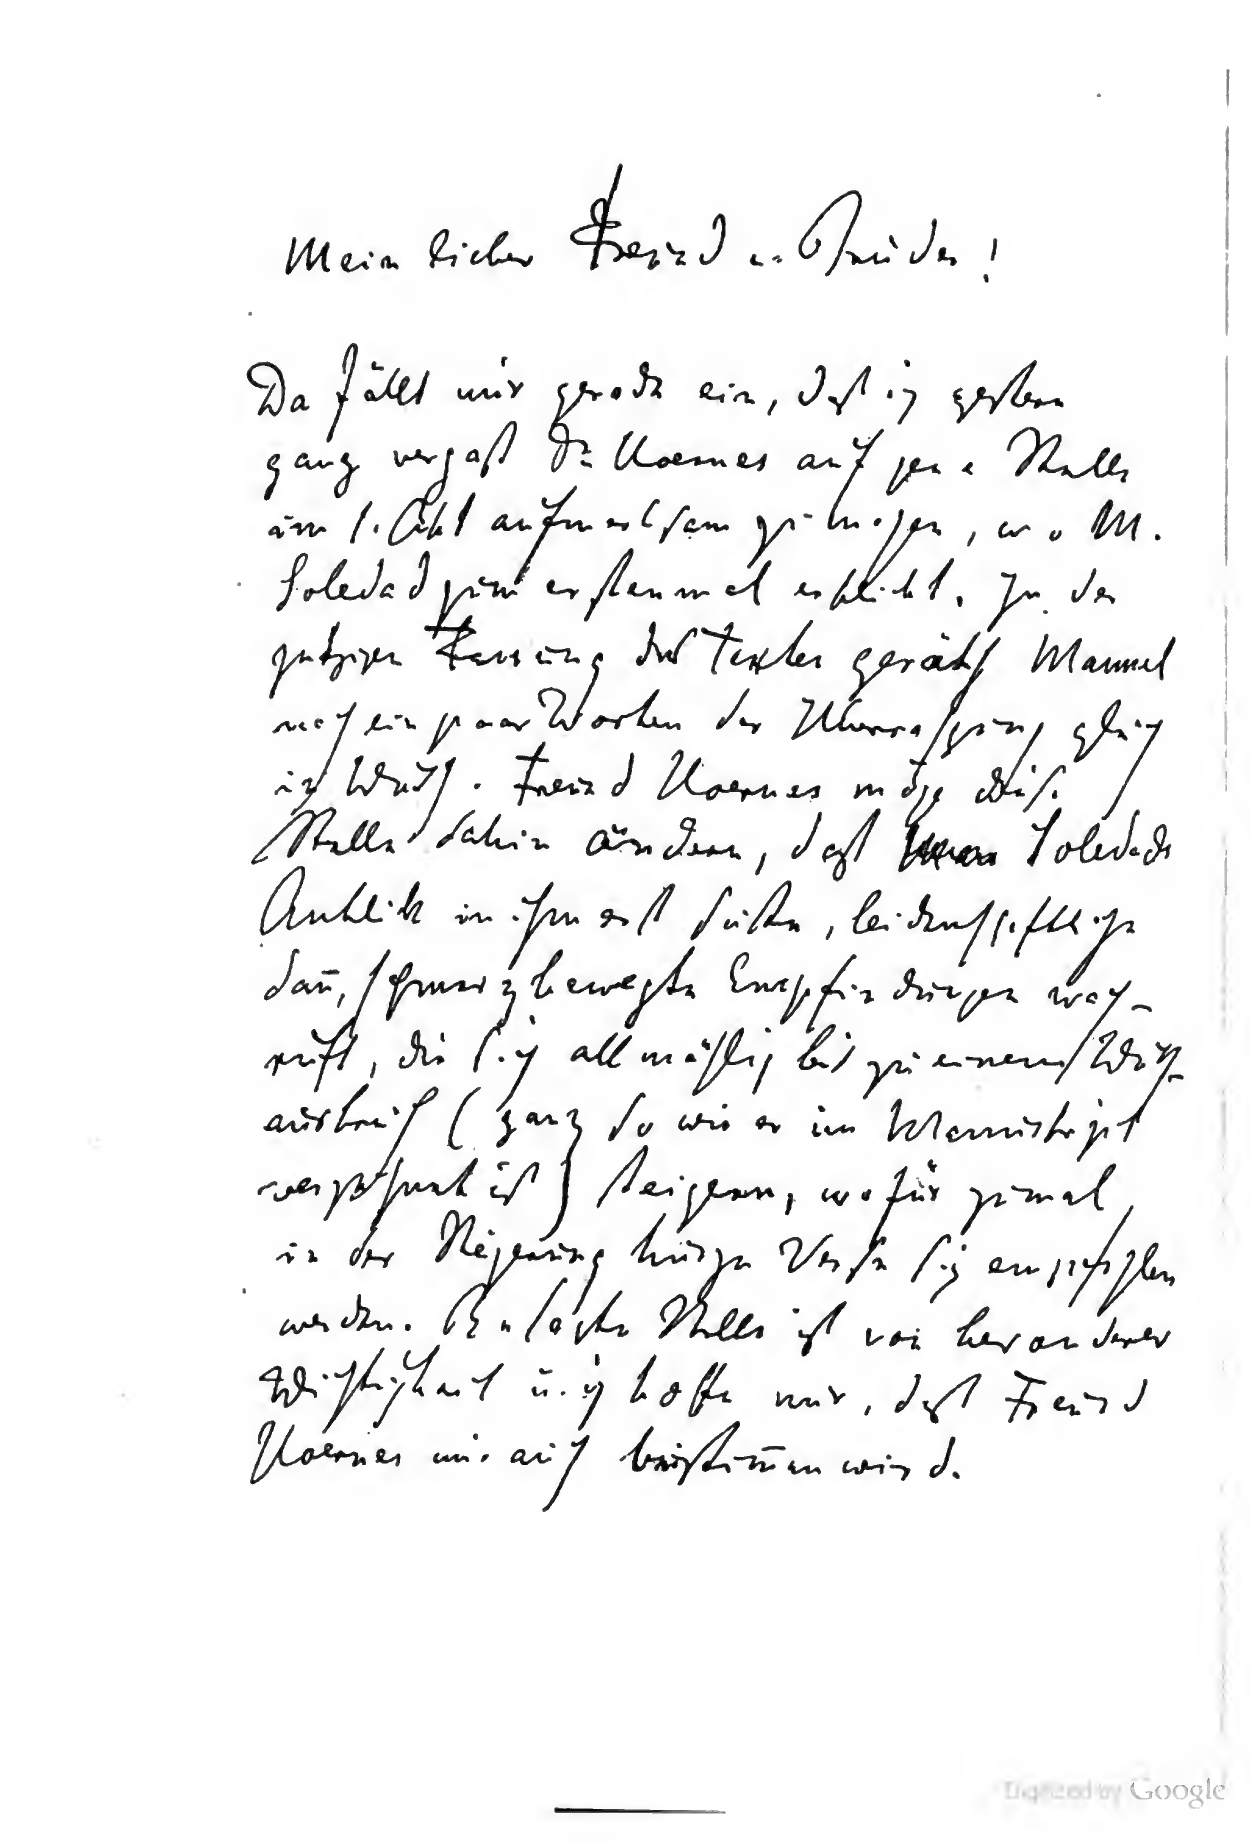 Mein lieber Freund u. Bruder!
Da fällt mir gerade ein, daß ich gestern
ganz vergaß Dr Hoernes auf jene Stelle
im I. Akt aufmerksam zu machen, wo M.
Soledad zum erstenmal erblickt. In der
jetzigen Fassung des Textes geräth Manuel
nach ein paar Worten der Überraschung gleich
in Wuth. Freund Hoernes möge diese
Stelle dahin ändern, daß Soledads
Anblick in ihm erst süße, leidenschaftliche
dañ, schmerzbewegte Empfindungen wach-
ruft, die sich allmählig bis zu einem Wuth-
ausbruch (ganz so wie er im Manuskript
verzeichnet ist) steigern, wofür zumal
in der Steigerung kurze Verse sich empfehlen
werden. Besagte Stelle ist von besonderer
Wichtigkeit u. ich hoffe nur, daß Freund
Hoernes mir auch beistim̃en wird.
Digitized by Google